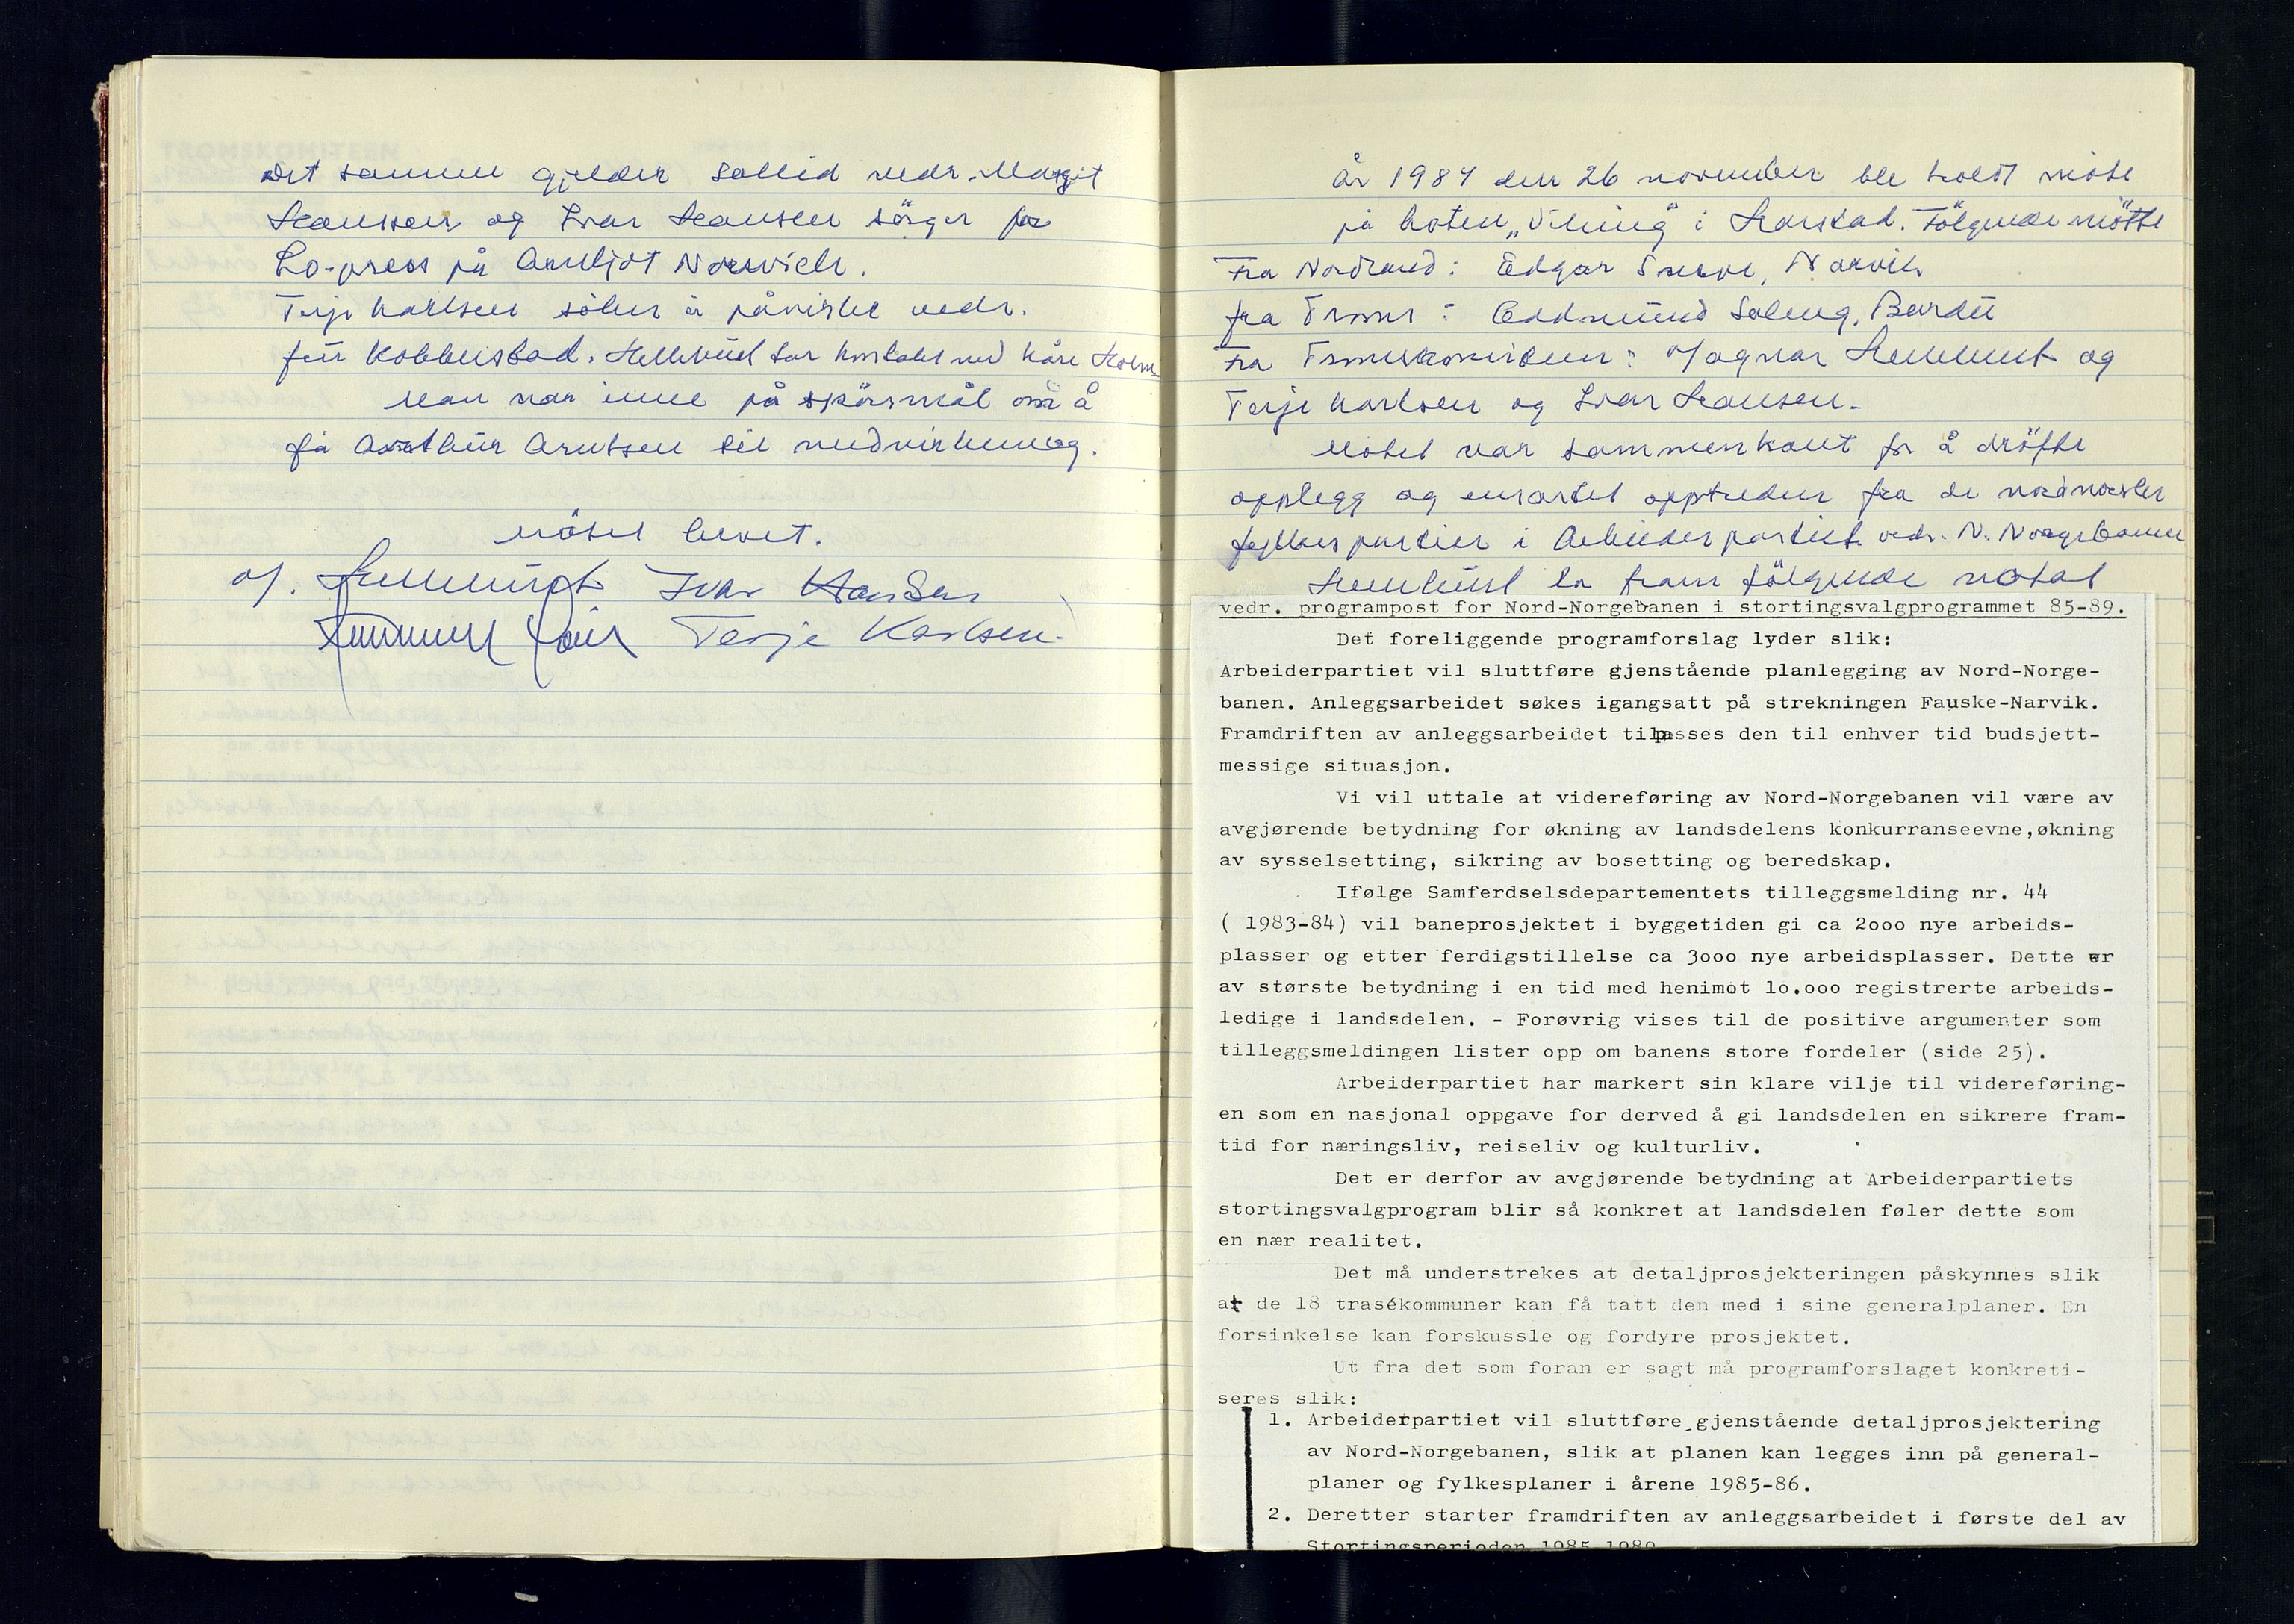 Det samme gjelder Sollid vedr. Margit
Hanssen og Ivar Hansen sörger for
Lo-press på Arnljot Norwich.
Terje Karlsen söker å påvirke vedr.
Finn Kobberstad. tar kontakt med Kåre
Man var inne på spörsmål om å
få Arthur Arntsen til medvirkning.
Mötet hevet.
Ivar Hansen
Terje Karlsen.
År 1984 den 26 november ble holdt möte
på hotell „Viking" i Harstad. Fölgende mötte
Fra Nordland: Edgar Snerve, Narvik
fra Troms: Oddmund Soleng, Bardu
Fra Tromskomiteen: Magnar og
Terje Karlsen og Ivar Hansen.
Mötet var sammenkalt for å dröfte
opplegg og ensartet opptreden fra de nordnorske
fylkespartier i Arbeiderpartiet vedr. N. Norgebanen
la fram fölgende notat
vedr. programpost for Nord-Norgebanen i stortingsvalgprogrammet 85-89.
Det foreliggende programforslag lyder slik:
Arbeiderpartiet vil sluttføre gjenstående planlegging av Nord-Norge-
banen. Anleggsarbeidet søkes igangsatt på strekningen Fauske-Narvik.
Framdriften av anleggsarbeidet tilpasses den til enhver tid budsjett-
messige situasjon.
Vi vil uttale at videreføring av Nord-Norgebanen vil være av
avgjørende betydning for økning av landsdelens konkurranseevne,økning
av sysselsetting, sikring av bosetting og beredskap.
Ifølge Samferdselsdepartementets tilleggsmelding nr. 44
( 1983-84) vil baneprosjektet i byggetiden gi ca 2ooo nye arbeids-
plasser og etter ferdigstillelse ca 3ooo nye arbeidsplasser. Dette er
av største betydning i en tid med henimot lo.ooo registrerte arbeids-
ledige i landsdelen. - Forøvrig vises til de positive argumenter som
tilleggsmeldingen lister opp om banens store fordeler (side 25).
Arbeiderpartiet har markert sin klare vilje til videreføring-
en som en nasjonal oppgave for derved å gi landsdelen en sikrere fram-
tid for næringsliv, reiseliv og kulturliv.
Det er derfor av avgjørende betydning at Arbeiderpartiets
stortingsvalgprogram blir så konkret at landsdelen føler dette som
en nær realitet.
Det må understrekes at detaljprosjekteringen påskynnes slik
at de 18 trasékommuner kan få tatt den med i sine generalplaner. En
forsinkelse kan forskussle og fordyre prosjektet.
Ut fra det som foran er sagt må programforslaget konkreti-
seres slik:
1. Arbeiderpartiet vil sluttføre gjenstående detaljprosjektering
av Nord-Norgebanen, slik at planen kan legges inn på general-
planer og fylkesplaner i årene 1985-86.
2. Deretter starter framdriften av anleggsarbeidet i første del av
Stortingsperioden 1985-1989